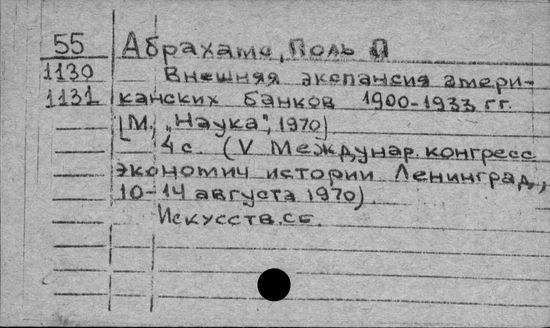 55 Абрахамс, Поль П
1130 Внешняя экспансия амери-
1131 канских банков 1900-1933 гг.
[М., "Наука", 1970]
4 с. (V Междунар. конгресс
экономич истории Ленинград,
10-14 августа 1970).
Искусств. сб.